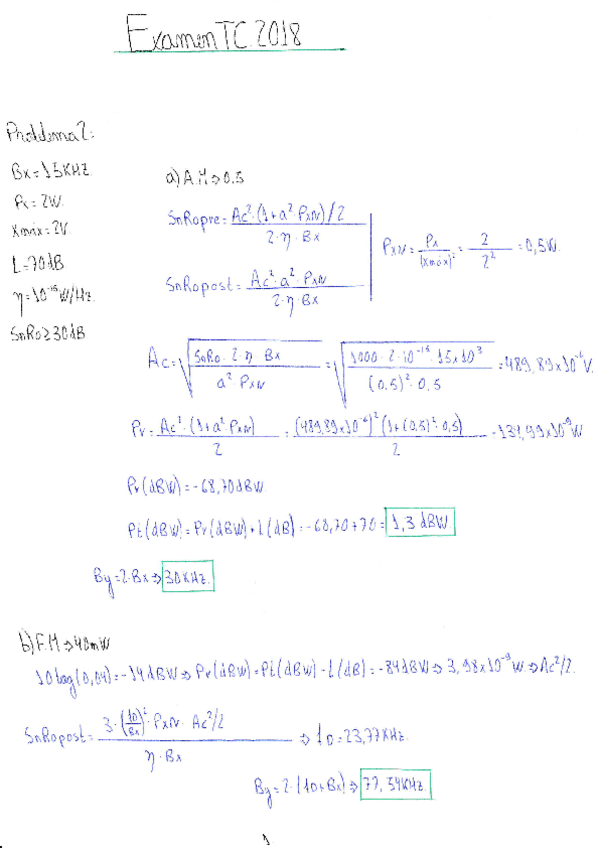 Examen TC 2018
Problema 2:
Bx=15KHz
Px=2W.
Xmáx=2V.
L=70dB
η=10⁻¹⁵W/Hz.
SnRo≥30dB
a) A.M⇒0.5
SnRopre= Ac²·(1+a²·PxN)/2 / 2·η·Bx
SnRopost= Ac²·a²·PxN / 2·η·Bx
PxN= Px/(Xmáx)² = 2/2² =0,5W.
Ac=√(SnRo·2·η·Bx / a²·PxN) =√(1000·2·10⁻¹⁵·15x10³ / (0,5)²·0,5) =489,89x10⁻⁶V.
Pr= Ac²·(1+a²PxN) / 2 = (489,89x10⁻⁶)²(1+(0,5)²·0,5) / 2 =134,99x10⁻⁹W
Pr(dBW)=-68,70dBW
Pt(dBW)=Pr(dBW)+L(dB)=-68,70+70=1,3 dBW
By=2·Bx⇒30KHz.
b) F.M⇒40mW
10log(0,04)=-14dBW⇒Pr(dBW)=Pt(dBW)-L(dB)=-84dBW⇒3,98x10⁻⁹W.⇒Ac²/2.
SnRopost= 3·(fD/Bx)²·PxN·Ac²/2 / η·Bx ⇒fD=23,77KHz.
By=2·(fD+Bx)⇒77,54KHz.
1